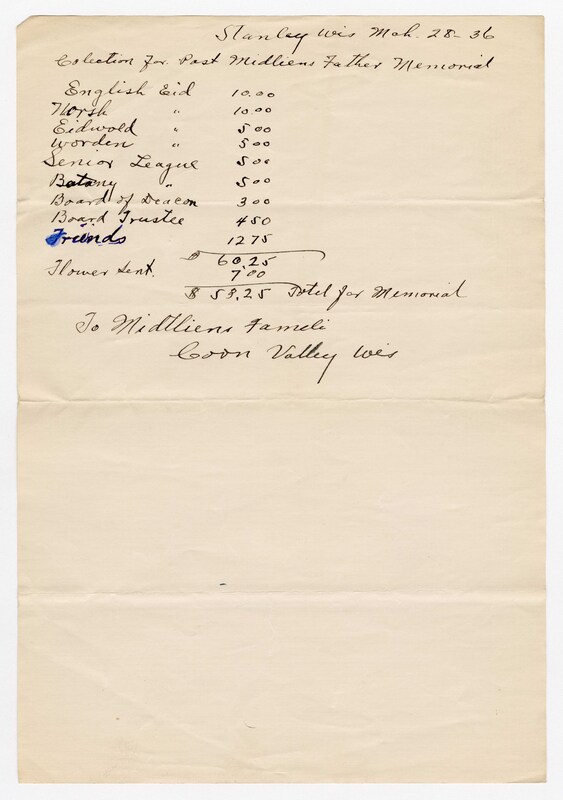 Stanley Wis Mch. 28-36
Colection for Past Midliens Father Memorial
English Eid 10.00
Norsk " 10.00
Eidwold " 5 00
Worden " 5 00
Senior League 5 00
Botany " 5 00
Board of Deacon 3 00
Board Trustee 4 50
Friends 12 75
$ 60.25
Flower Sent. 7.00
$ 53.25 Totel for Memorial
To Midtliens Fameli
Coon Valley Wis